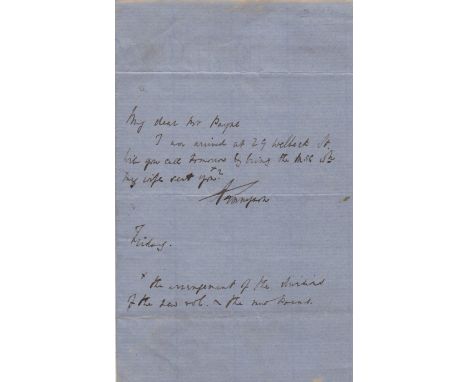 My dear Mr Payne
I am arrived at 29 Welbeck St.
will you call tomorrow & bring the M.S.S.
my wife sent you x?
ATennyson
Friday.
x the arrangement of the divisions
of the new vol. & the new Poems.